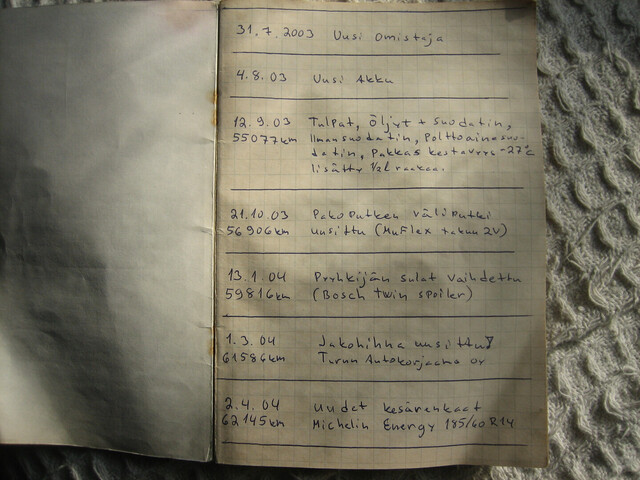 31.7.2003 Uusi omistaja
4.8.03 Uusi Akku
12.9.03 Tulpat, Öljyt + suodatin,
55077km Ilmansuodatin, Polttoainesuo-
datin, Pakkas kestavyys -27°c
lisätty ½l raakaa.
21.10.03 Pakoputken väliputki
56906km uusittu (MuFlex takuu 2V)
13.1.04 Pyyhkijän sulat vaihdettu
59816km (Bosch twin spoiler)
1.3.04 Jakohihna uusittu
61586km Turun Autokorjaamo oy
2.4.04 uudet kesärenkaat
62145km Michelin Energy 185/60 R14